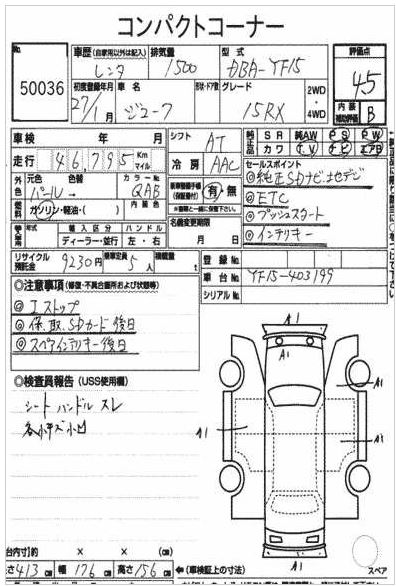 コンパクトコーナー
No.
50036
車歴 (自家用以外は記入) レンタ
排気量 1500
型式 DBA-YF15
評価点 4.5
初度登録年月 27/1月
車名 ジューク
形状・ドア数
グレード 15RX
2WD・4WD
内装補助評価 B
車検 年 月
シフト AT
純正品 SR 純AW PS PW
カワ TV ナビ エアB
走行 46,795 Km マイル
冷房 AAC
セールスポイント
◎純正SDナビ地デジ
◎ETC
◎プッシュスタート
◎インテリキー
外色 元色 色替 パール→
カラーNo. QAB
(保証書付) 有・無
燃料 ガソリン・軽油・( )
内装色
名義変更期限 月 日
輸入車 年式 輸入区分 ハンドル
ディーラー・並行 左・右
リサイクル預託金 9230円
乗車定員 5人
積載量 t
登録No.
車台No. YF15-403199
シリアルNo.
◎注意事項 (修復・不具合箇所および状態等)
◎エストップ
◎保、取、SDカード後日
◎スペアインテリキー後日
◎検査員報告 (USS使用欄)
シート ハンドル スレ
各小キズ小凹
A1
A1
A1
A1
A1
A1
スペア
台内寸) 約 × × (cm)
さ 413 cm 幅 176 cm 高さ 156 cm
← (車検証上の寸法)